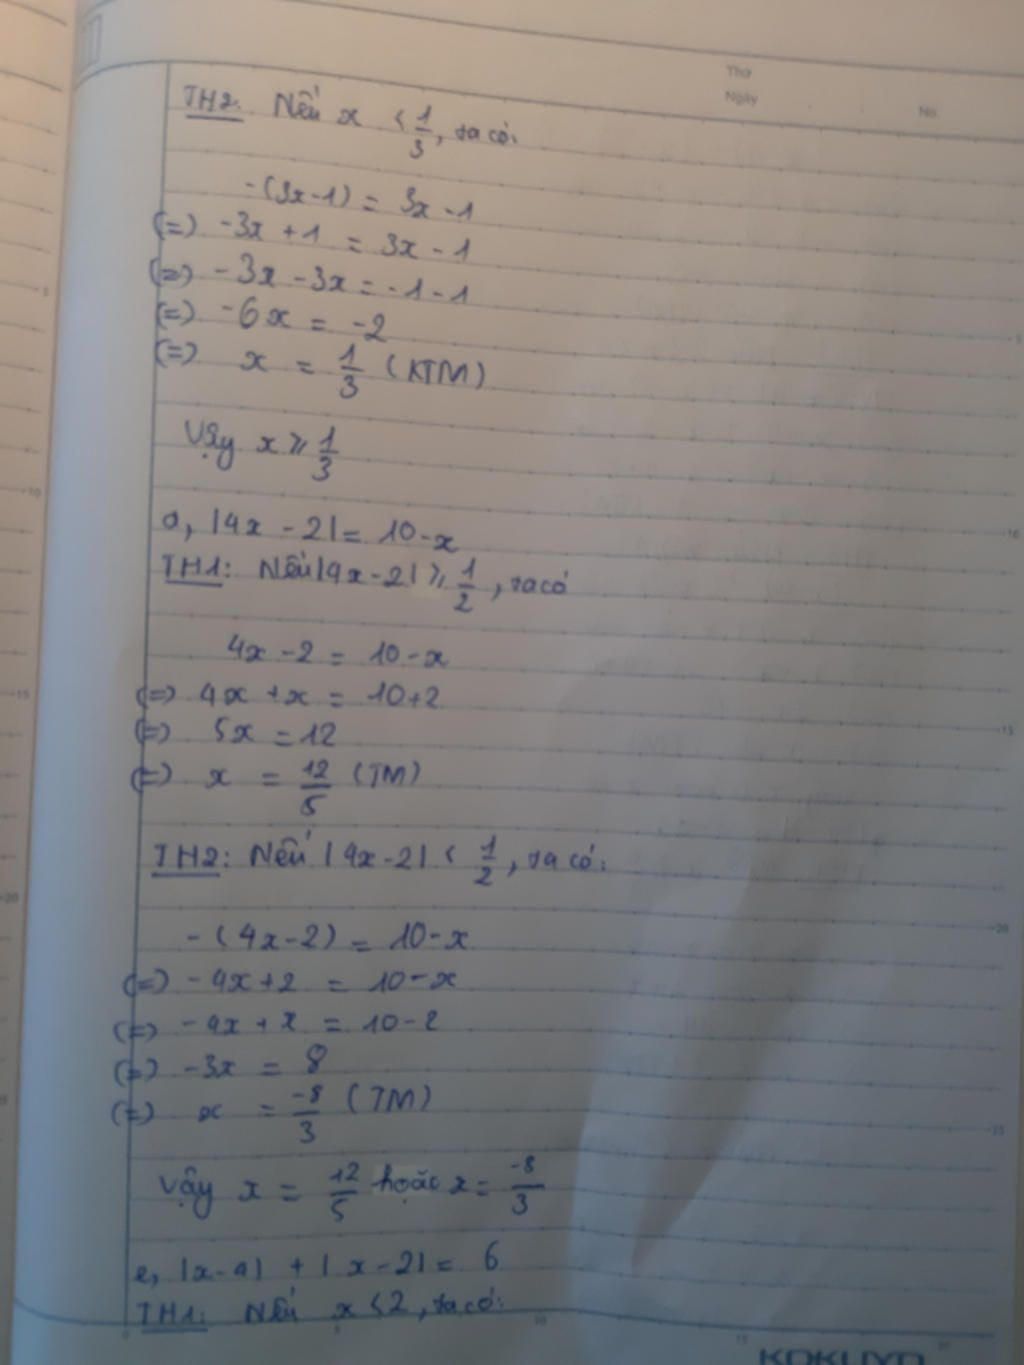 Thứ
Ngày
No.
TH2. Nếu x < 1/3, ta có:
-(3x-1) = 3x-1
(=) -3x+1 = 3x-1
(=) -3x-3x = -1-1
(=) -6x = -2
(=) x = 1/3 (KTM)
Vậy x ≥ 1/3
d, |4x-2| = 10-x
TH1: Nếu |4x-2| ≥ 1/2, ta có
4x-2 = 10-x
(=) 4x+x = 10+2
(=) 5x = 12
(=) x = 12/5 (TM)
TH2: Nếu |4x-2| < 1/2, ta có:
-(4x-2) = 10-x
(=) -4x+2 = 10-x
(=) -4x+x = 10-2
(=) -3x = 8
(=) x = -8/3 (TM)
Vậy x = 12/5 hoặc x = -8/3
e, |x-4| + |x-2| = 6
TH1: Nếu x<2, ta có:
KOKUYO